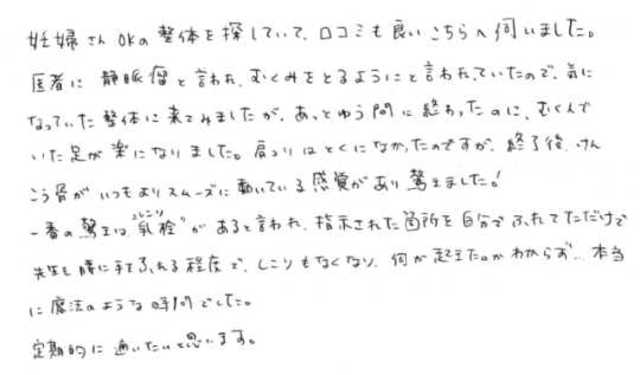 妊婦さんOKの整体を探していて、口コミも良いこちらへ伺いました。
医者に静脈瘤と言われ、むくみをとるようにと言われていたので、気に
なっていた整体に来てみましたが、あっとゆう間に終わったのに、むくんで
いた足が楽になりました。肩コリはとくになかったのですが、終了後、けん
こう骨がいつもよりスムーズに動いている感覚があり驚きました！
一番の驚きは、"乳栓"しこりがあると言われ、指示された箇所を自分でふれてただけで
先生も腰に手をふれる程度で、しこりもなくなり、何が起きたのかわからず…本当
に魔法のような時間でした。
定期的に通いたいと思います。